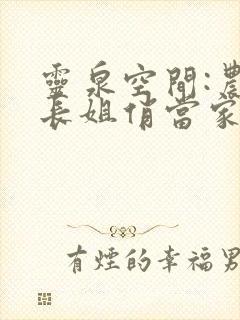 靈泉空間:農
長姐俏當家
有煙的幸福男